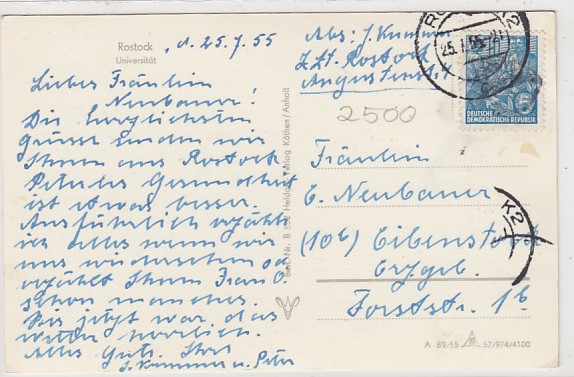 Rostock
Universität
d. 25.7.55
Liebes Fräulein
Neubauer!
Die herzlichsten
Grüsse senden wir
Ihnen aus Rostock
Peterles Gesundheit
ist etwas besser.
Ausführlich erzähle
ich alles wenn wir
uns wiedersehen od.
erzählt Ihnen Frau O.
schon manches.
Bis jetzt war das
Wetter herrlich.
Alles Gute. Ihre
J. Kummer u. Peter
Best.-Nr. B Verlag Köthen/Anhalt
Abs: J. Kummer
z.Zt. Rostock
2500
25. 55
DEUTSCHE
DEMOKRATISCHE REPUBLIK
Fräulein
E. Neubauer
(10b) Eibenstock
Erzgeb.
Forststr. 1b
K2
A 89/55 57/974/4100